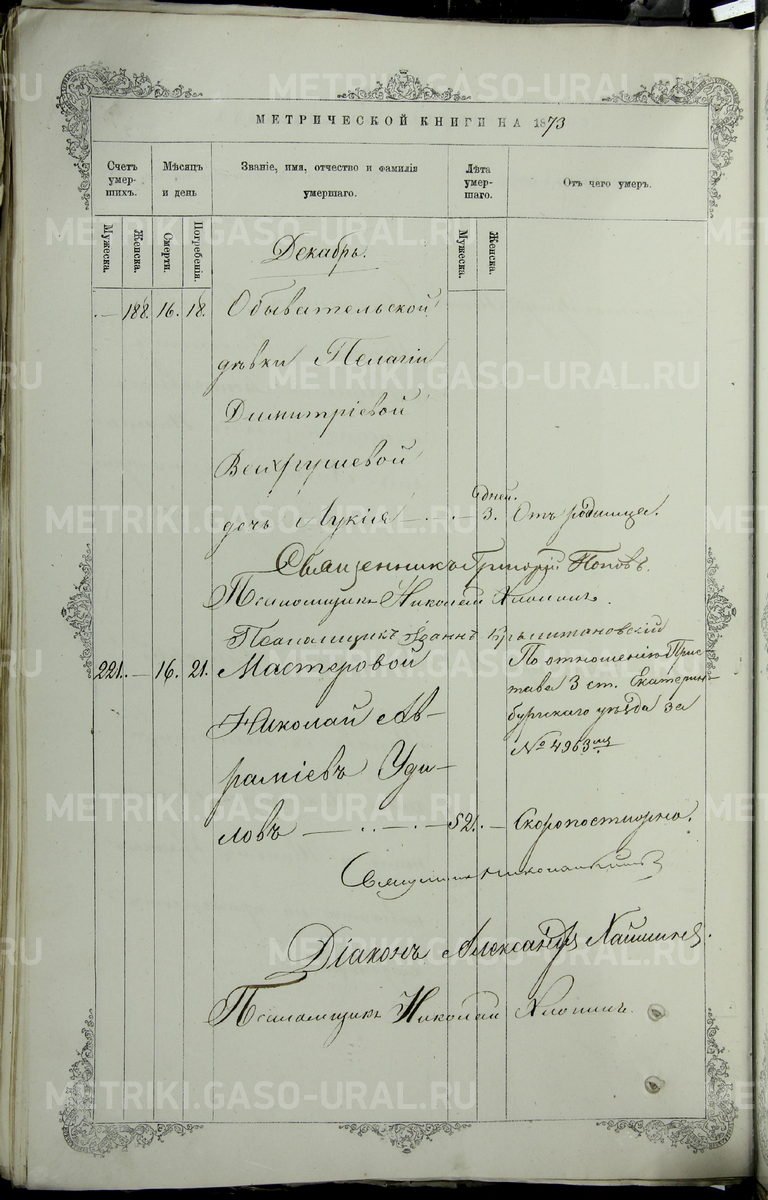 МЕТРИЧЕСКОЙ КНИГИ НА 1873
Счетъ умер-шихъ.
Мѣсяцъ и день
Званіе, имя, отчество и фамилія умершаго.
Лѣта умер-шаго.
Отъ чего умеръ.
Мужеска.
Женска.
Смерти.
Погребенія.
Мужеска.
Женска.
Декабрь.
— 188. 16. 18. Обывательской
дѣвки Пелагіи
Димитріевой
Вахрушевой
дней.
дочь Лукія — 3. Отъ родимца.
Священникъ Григорій Поповъ.
Псаломщикъ Николай Хлопинъ.
Псаломщикъ Іоаннъ
221. — 16. 21. Мастеровой
Николай Ав-
раміевъ Уди-
ловъ — 52. —
По отношенію Прис-
тава 3 ст. Екатерин-
бургскаго уѣзда за
№ 4963
Скоропостижно.
Священникъ Николай
Діаконъ Александръ
Псаломщикъ Николай Хлопинъ
METRIKI.GASO-URAL.RU